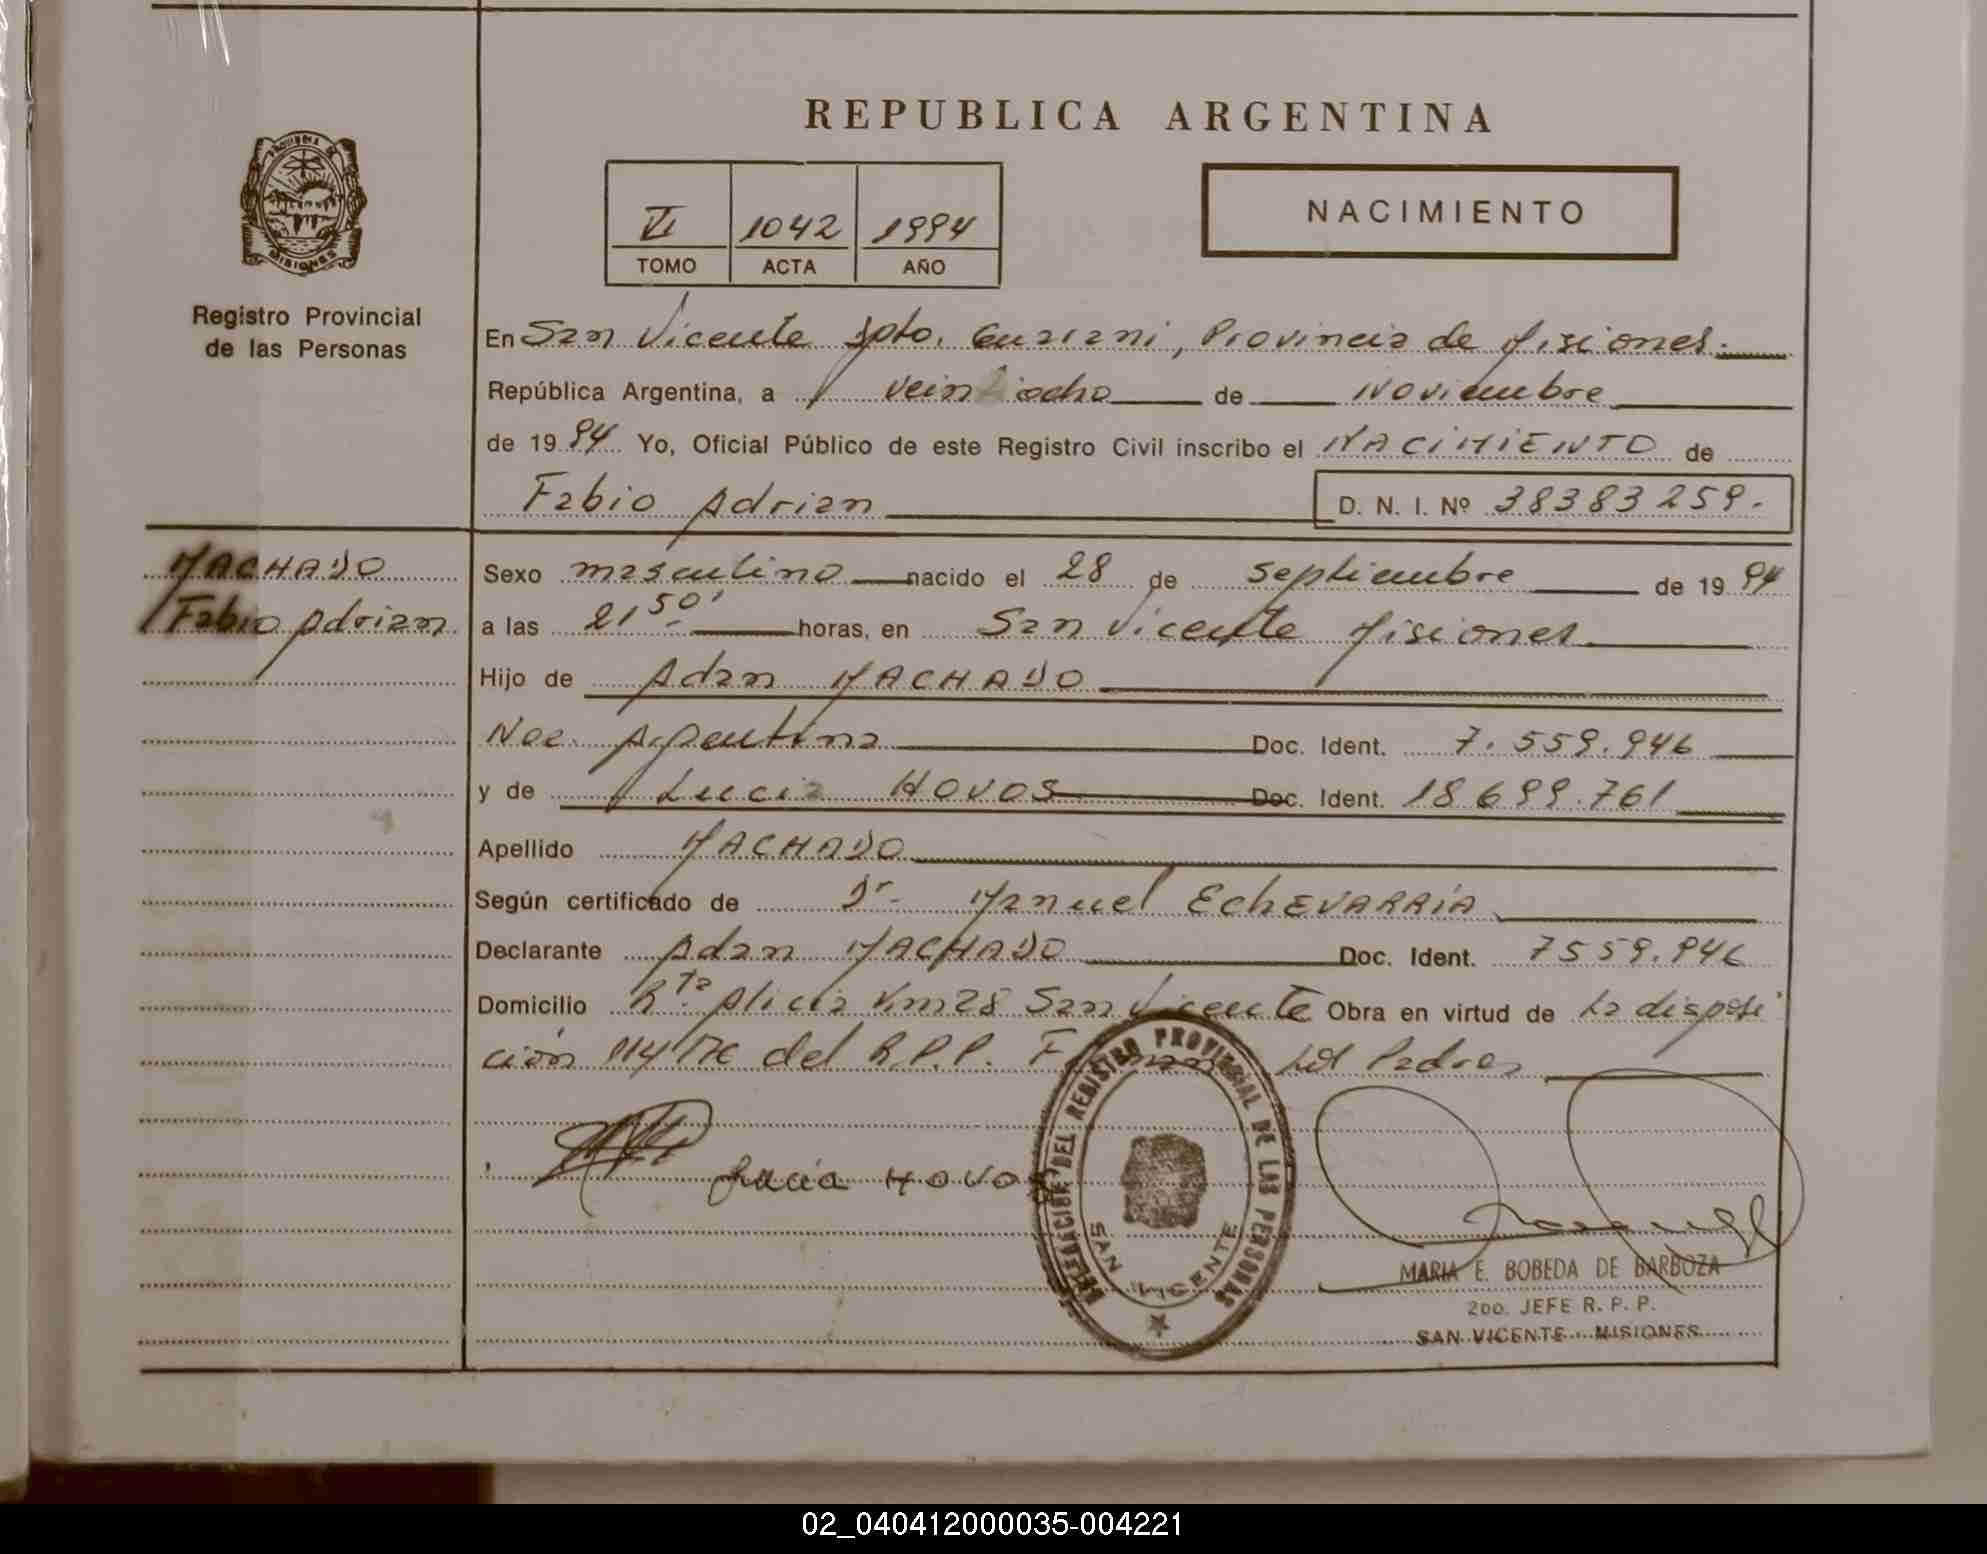 REPUBLICA ARGENTINA
PROVINCIA DE
MISIONES
Registro Provincial
de las Personas
VI 1042 1994
TOMO ACTA AÑO
NACIMIENTO
En San Vicente Dpto. Guarani, Provincia de Misiones.
República Argentina, a veintiocho de Noviembre
de 1994 Yo, Oficial Público de este Registro Civil inscribo el NACIMIENTO de
Fabio Adrian D. N. I. Nº 38383259.
MACHADO
Fabio Adrian
Sexo masculino nacido el 28 de septiembre de 1994
a las 21 50' horas, en San Vicente Misiones
Hijo de Adan MACHADO
Nac. Argentina Doc. Ident. 7.559.946
y de Lucia HOVOS Doc. Ident. 18.699.761
Apellido MACHADO
Según certificado de Dr. Manuel EchEVARRIA
Declarante Adan MACHADO Doc. Ident. 7559.946
Domicilio Rta. Alicia Km28 San Vicente Obra en virtud de La disposi
ción del R.P.P. Los Padres
Lucia HOVOS
DELEGACION DEL REGISTRO PROVINCIAL DE LAS PERSONAS
SAN VICENTE
MARIA E. BOBEDA DE BARBOZA
2DO. JEFE R. P. P.
SAN VICENTE - MISIONES
02_040412000035-004221